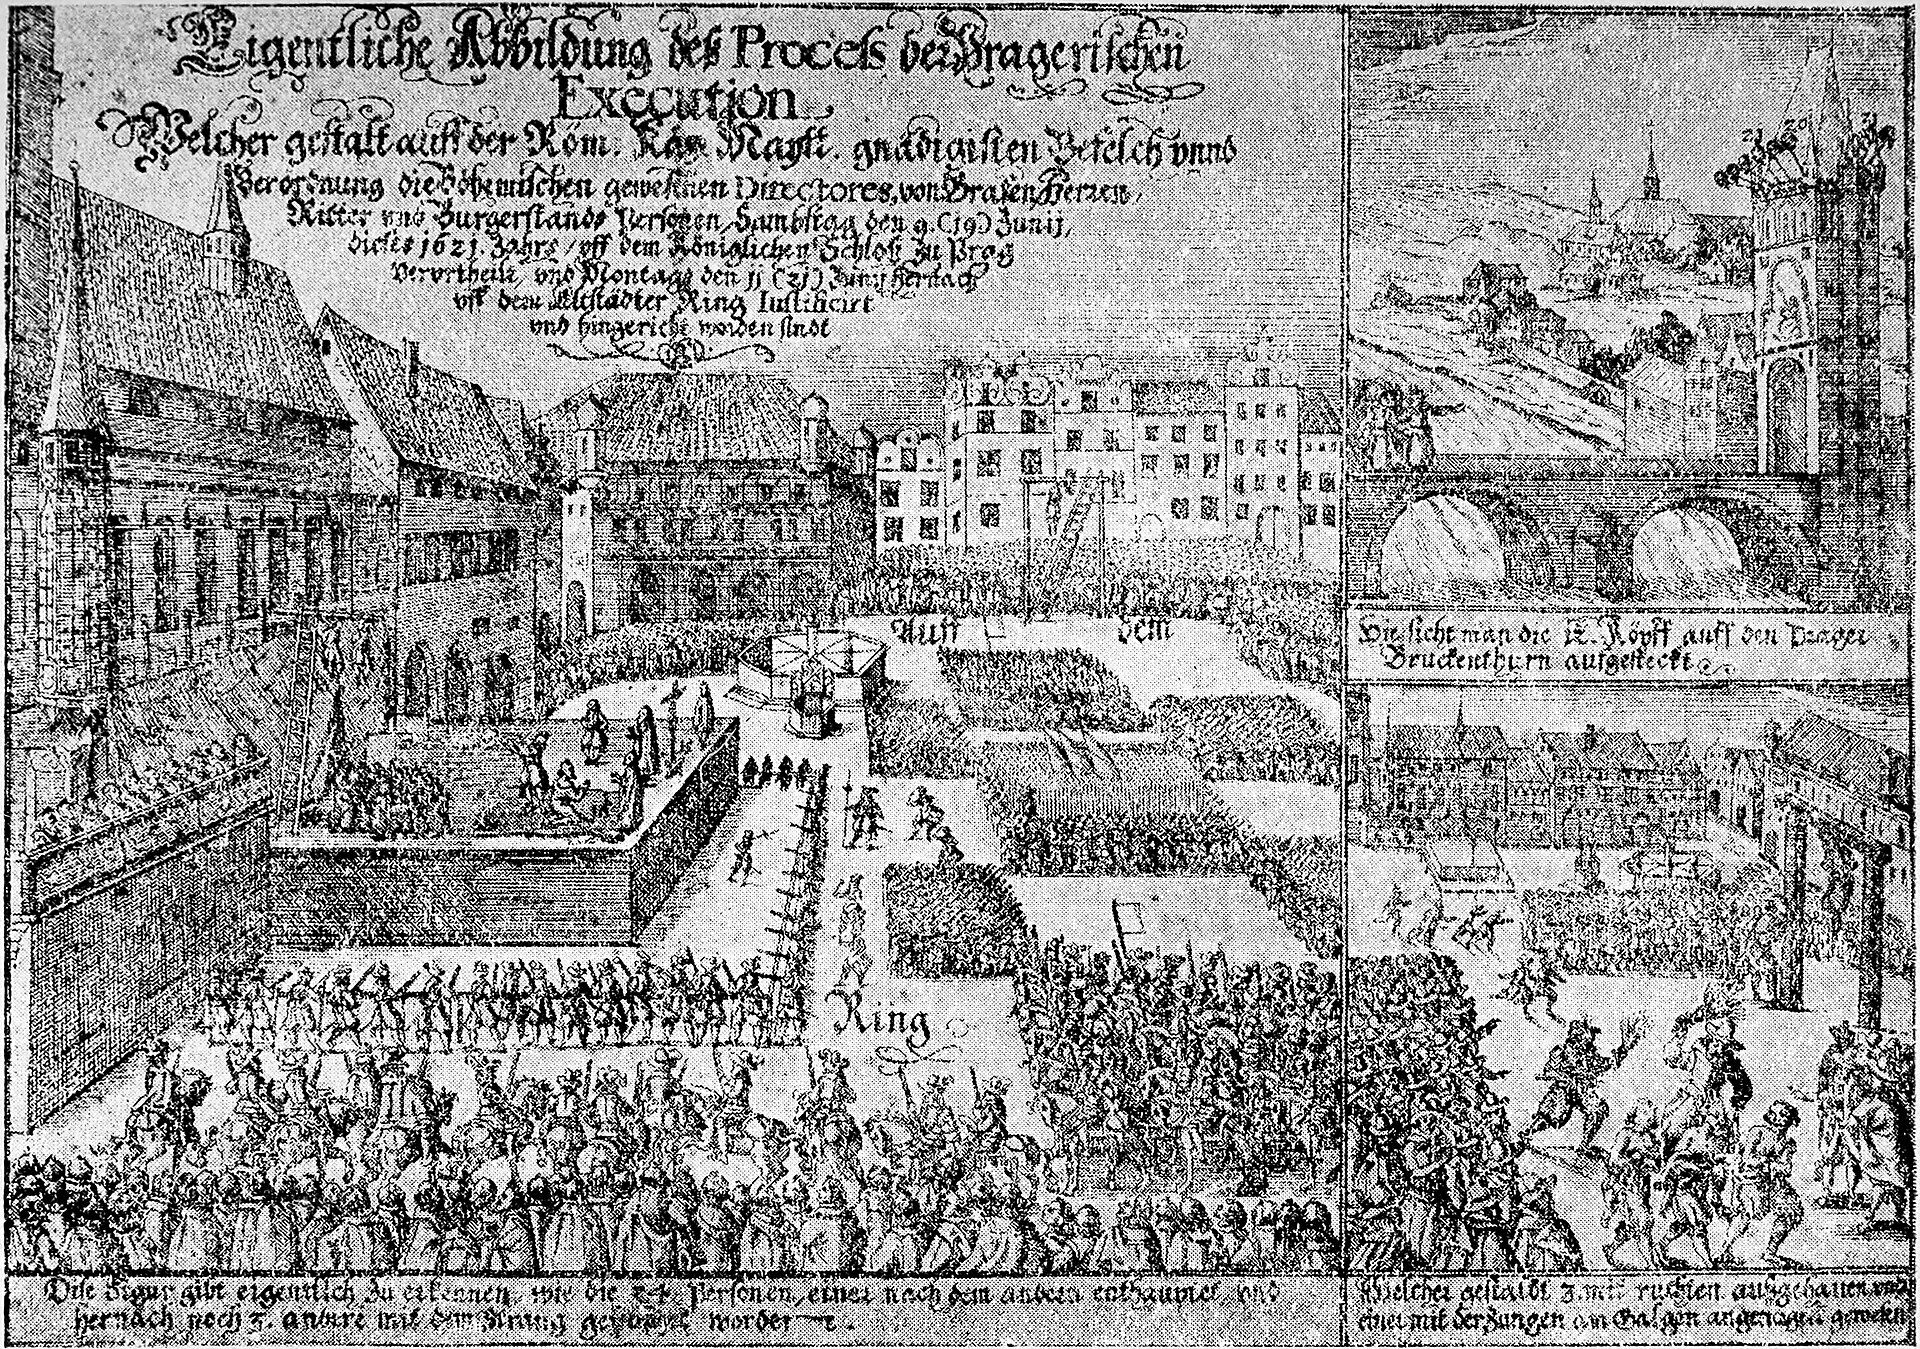 Eigentliche Abbildung des Process der Pragerischen
Execution
Welcher gestalt auff der Röm. Kay. Maytt. gnädigisten Befelch vnnd
Verordnung die Böhemischen gewesenen Directores, von Grafen, Herren,
Ritter vnd Burgerstands Personen, Sambstag den 9. (19) Junij,
dieses 1621. Jahrs / vff dem Königlichen Schloß zu Prag
Vervrtheilt, vnd Montags den 11 (21) Junij hernach
vff dem Altstädter Ring Iustificirt
vnd hingericht worden sindt
Auff dem
Ring
Hie sicht man die 12. Köpff auff den Prager
Bruckenthurn aufgesteckt
Dise Figur gibt eigentlich zu erkennen, wie die 24 Personen, einer nach dem andern enthauptet, vnd
hernach noch 3. andere mit dem Strang worden
Welcher gestaldt 3. mit ruhten außgehauen vnd
einer mit der Zungen an Galgen angenagelt gewesen